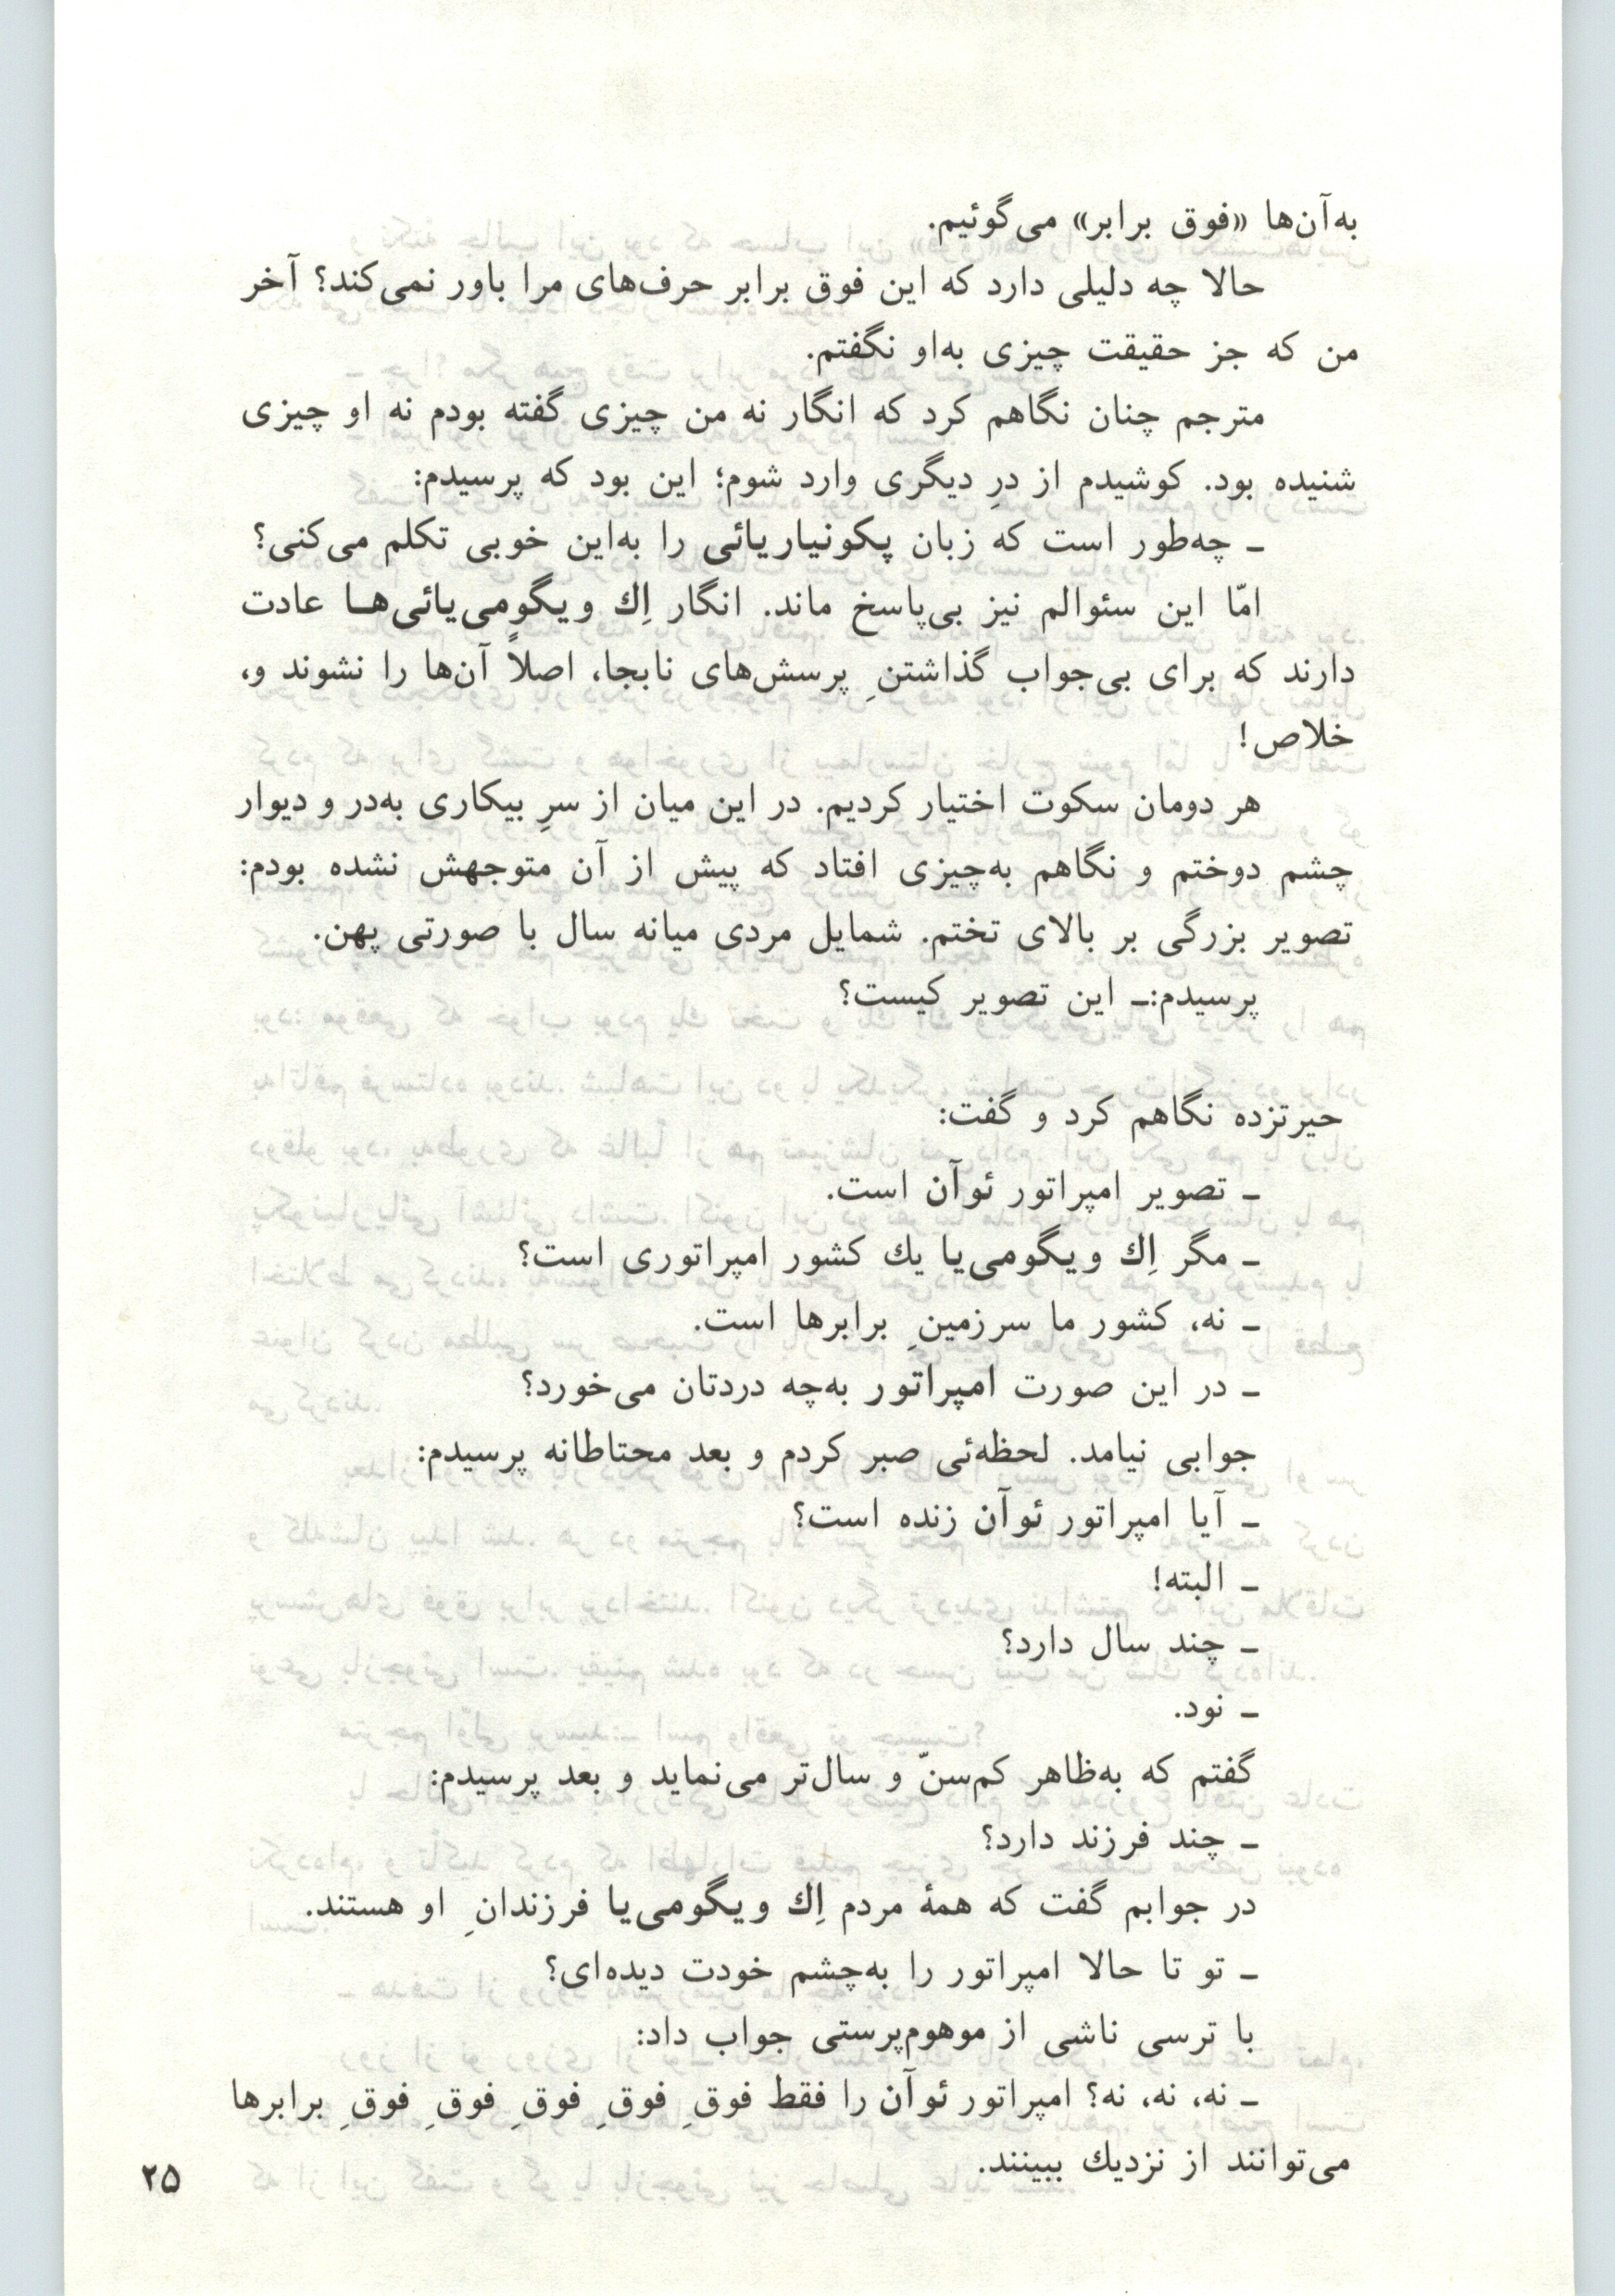 به‌آن‌ها «فوق برابر» می‌گوئیم.
حالا چه دلیلی دارد که این فوق برابر حرف‌های مرا باور نمی‌کند؟ آخر
من که جز حقیقت چیزی به‌او نگفتم.
مترجم چنان نگاهم کرد که انگار نه من چیزی گفته بودم نه او چیزی
شنیده بود. کوشیدم از درِ دیگری وارد شوم؛ این بود که پرسیدم:
ـ چه‌طور است که زبان پکونیاریائی را به‌این خوبی تکلم می‌کنی؟
امّا این سئوالم نیز بی‌پاسخ ماند. انگار اِك ویگومی‌یائی‌هـا عادت
دارند که برای بی‌جواب گذاشتنِ پرسش‌های نابجا، اصلاً آن‌ها را نشوند و،
خلاص!
هر دومان سکوت اختیار کردیم. در این میان از سرِ بیکاری به‌در و دیوار
چشم دوختم و نگاهم به‌چیزی افتاد که پیش از آن متوجهش نشده بودم:
تصویر بزرگی بر بالای تختم. شمایل مردی میانه سال با صورتی پهن.
پرسیدم:ـ این تصویر کیست؟
حیرتزده نگاهم کرد و گفت:
ـ تصویر امپراتور ئوآن است.
ـ مگر اِك ویگومی‌یا یك کشور امپراتوری است؟
ـ نه، کشور ما سرزمینِ برابرها است.
ـ در این صورت امپراتور به‌چه دردتان می‌خورد؟
جوابی نیامد. لحظه‌ئی صبر کردم و بعد محتاطانه پرسیدم:
ـ آیا امپراتور ئوآن زنده است؟
ـ البته!
ـ چند سال دارد؟
ـ نود.
گفتم که به‌ظاهر کم‌سنّ و سال‌تر می‌نماید و بعد پرسیدم:
ـ چند فرزند دارد؟
در جوابم گفت که همهٔ مردم اِك ویگومی‌یا فرزندانِ او هستند.
ـ تو تا حالا امپراتور را به‌چشم خودت دیده‌ای؟
با ترسی ناشی از موهوم‌پرستی جواب داد:
ـ نه، نه، نه؟ امپراتور ئوآن را فقط فوقِ فوقِ فوقِ فوقِ فوقِ برابرها
می‌توانند از نزدیك ببینند.
۲۵